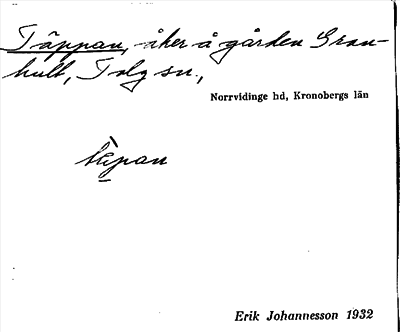 Täppan, åker å gården Gran-
hult, Tolg sn.,
Norrvidinge hd, Kronobergs län
tɛ̀pan
Erik Johannesson 1932